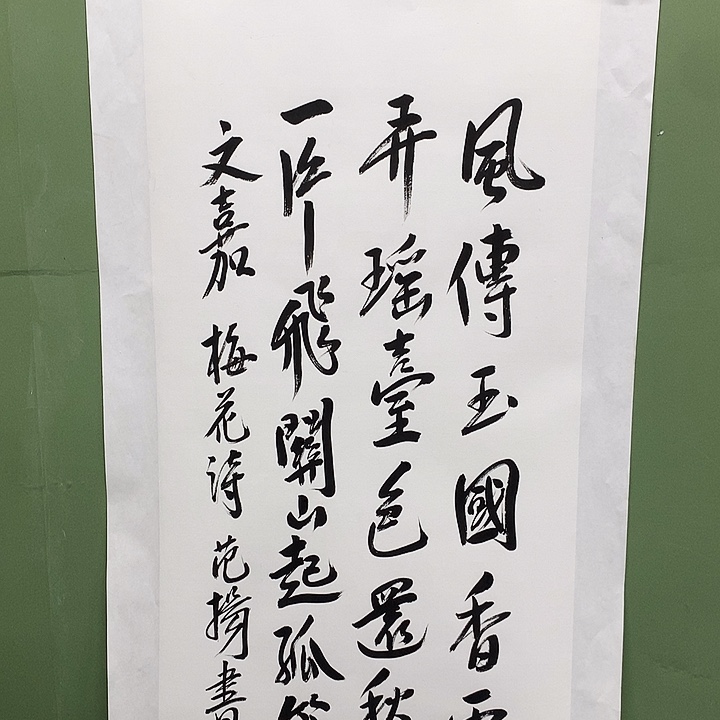 風傳玉國香
弄瑶臺色還
一飛關山起孤
文嘉 梅花詩 范書